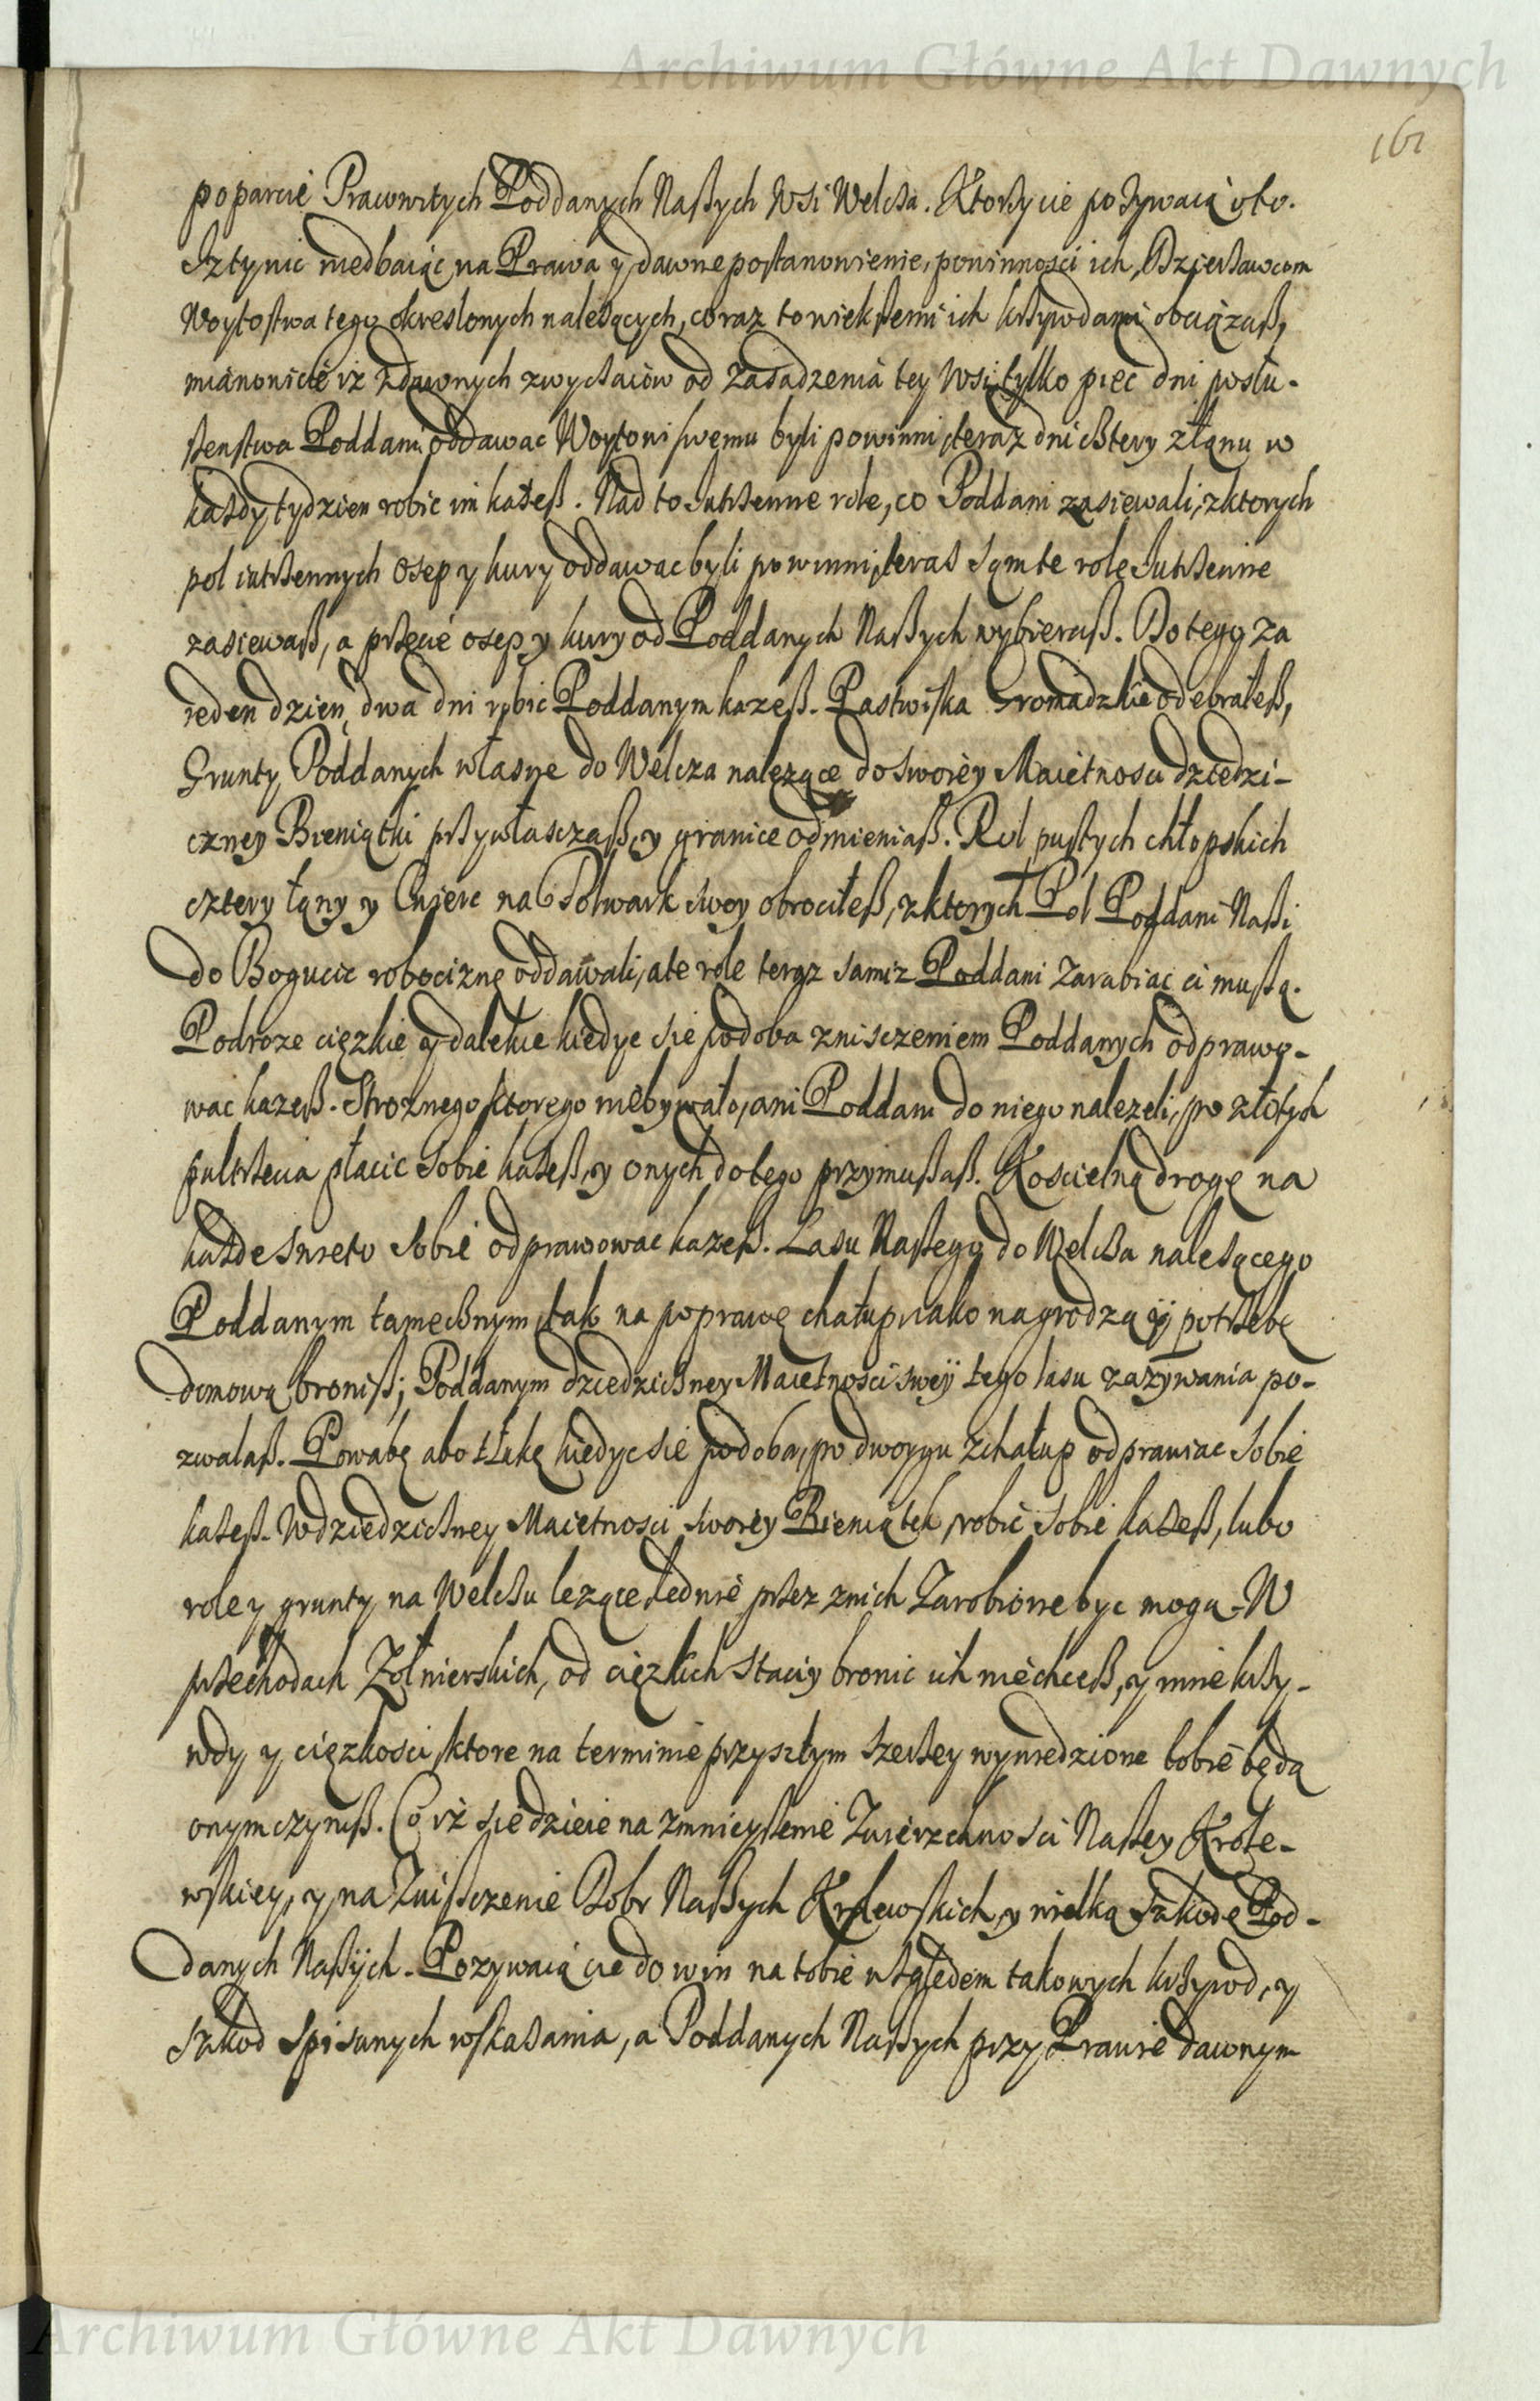 Archiwum Główne Akt Dawnych
161
poparcie Pracowitych Poddanych Naßych Wsi Welcza. Ktorzy cie pozywaią oto.
Iz ty nic niedbaiąc na Prawa y dawne postanowienie, powinnosci ich, Dzierzawcom
Woytostwa tego okreslonych nalezących, coraz to wiekßemi ich krzywdami obciązaß,
mianowicie iz zdawnych zwyczaiów od Zasadzenia tey Wsi, tylko pięc dni posłu-
ßenstwa Poddani oddawac Woytowi swemu byli powinni, teraz dni cztery złanu w
kazdy tydzien robic im kazeß. Nad to Jutrzenne role, co Poddani zasiewali, zktorych
pol iutrzennych osep y kury oddawac byli powinni, teraz sam te role Jutrzenne
zasiewaß, a przecie osep y kury od Poddanych Naßych wybieraß. Do tego za
ieden dzien, dwa dni robic Poddanym kazeß. Pastwiska Gromadzkie odebrałeß,
Grunty Poddanych własne do Welcza nalezące do swoiey Maiętnosci dziedzi-
czney Bieniątki przywłasczaß, y granice odmieniaß. Rol pustych chłopskich
cztery łany y Cwierc na Folwark swoy obrociłeß, zktorych Pol Poddani Naßi
do Bogucic robociznę oddawali, a te role teraz sami z Poddani Zarabiac ci mußą.
Podroze cięzkie y dalekie kiedyc sie podoba zniszczeniem Poddanych odprawo-
wac kazeß. Stroznego ktorego niebywało, ani Poddani do niego nalezeli, po złotych
pułtrzecia płacic sobie kazeß, y onych do tego przymußaß. Koscielną drogę na
kazde swieto sobie odprawowac kazeß. Lasu Naßego do Welcza nalezącego
Poddanym tamecznym, tak na poprawę chałup, iako na grodzą y potrzebę
domową broniß; Poddanym dziedziczney Maietnosci swey tego lasu zazywania po-
zwalaß. Powabę abo tłukę kiedyc sie podoba, po dwoygu zchałup odprawiac sobie
kazeß. W dziedziczney Maietnosci swoiey Bieniątek, robic sobie kazeß, lubo
role y grunty na Welczu lezące ledwie przez znich Zarobione byc mogą. W
przechodach Zołnierskich, od cięzkich Staciy bronic ich niechceß, y inne krzy-
wdy y cięzkosci, ktore na terminie przyszłym szerzey wywiedzione tobie będą
onym czyniß. Co iz sie dzieie na zmnieyßenie Zwierzchnosci Naßey Krole-
wskiey, y na Znißczenie Dobr Naßych Krolewskich, y wielką szkodę Pod-
danych Naßych. Pozywaią cie do win na tobie względem takowych krzywd, y
szkod spisanych wskazania, a Poddanych Naßych przy Prawie dawnym
Archiwum Główne Akt Dawnych